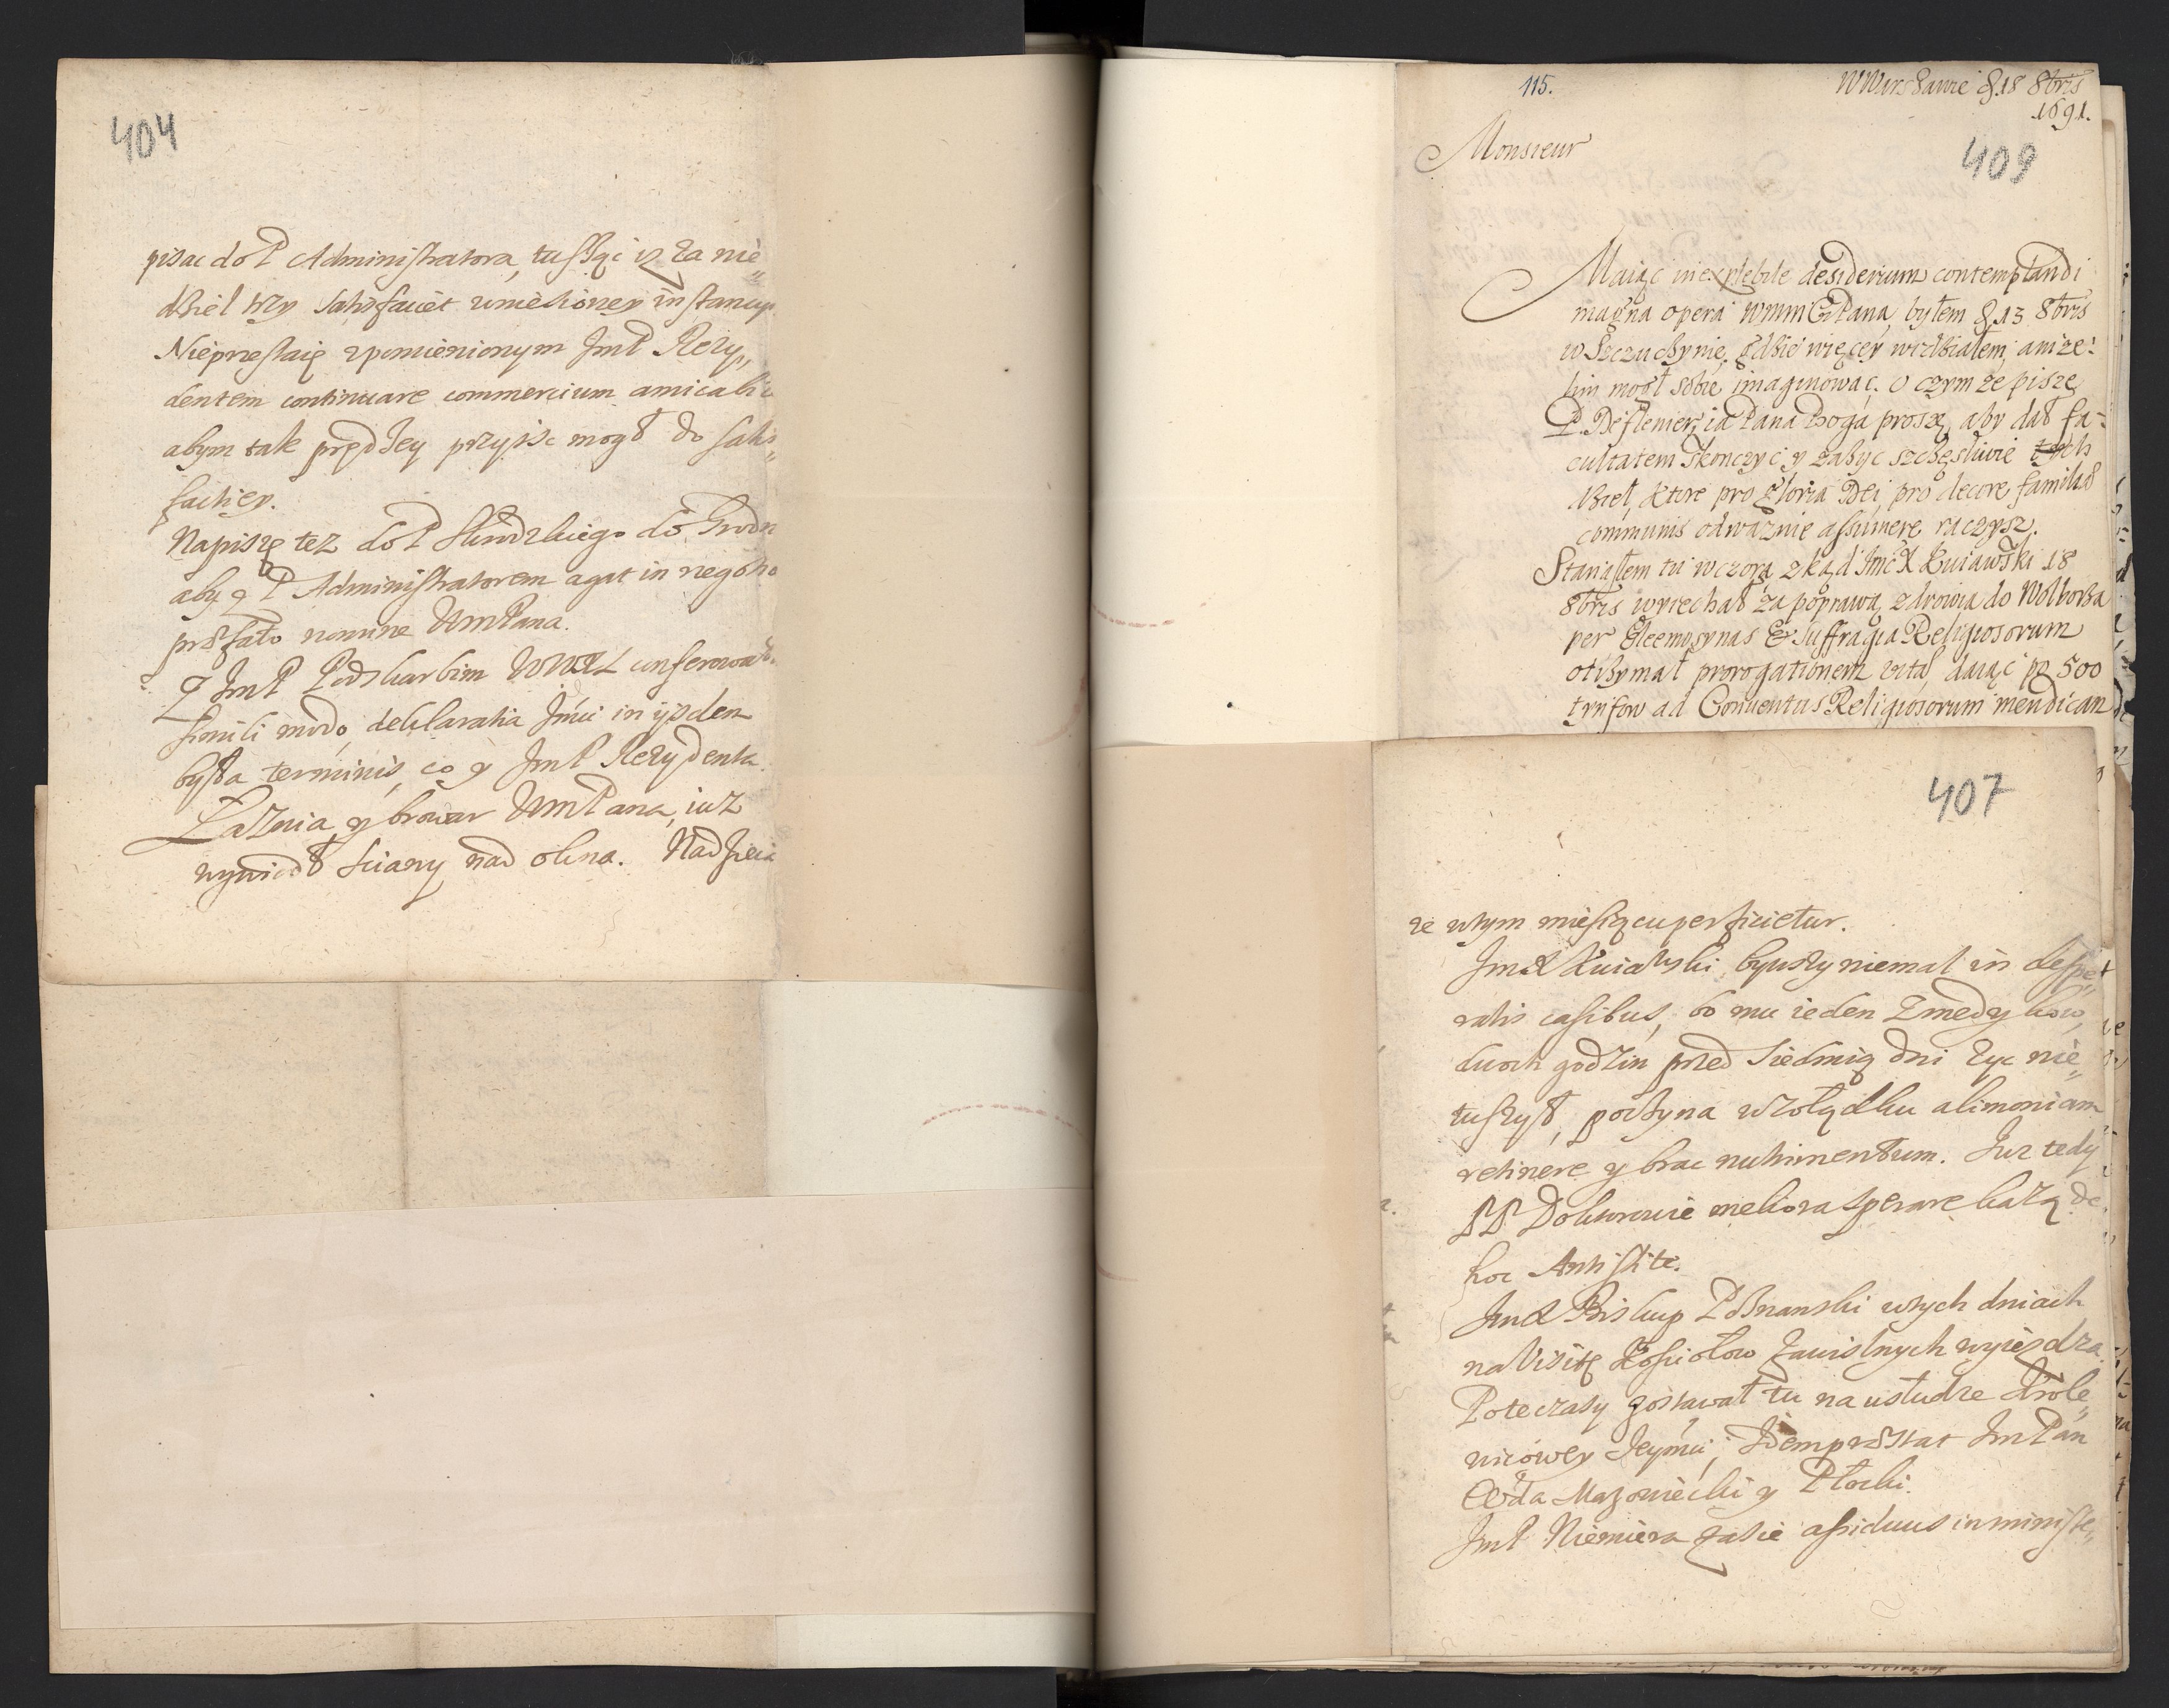 404
pisac do P Administratora, tusżąc iz za nie„
dźiel trzy satisfaciet wniesioney instancyi
Nieprzestaię zpomienionym JmP Rezy„
dentem continuare commercium amicabile
abym tak prędzey przyisc mogł do satis„
factiey.
Napiszę tez do P do Grodn
aby z P Administratorem agat in negotio
præfato nomine WmPana.
Z JmP Podskarbim WWXL conferował
simili modo, deklaratia Jmci in ijsdem
była terminis, co y JmP Rezydenta.
Łaznia y browar WmPana, iuz
wywiodł sciany nad okna. Nadzieia
115.
WWarszawie d. 18 8bris
1691.
409
Monsieur
Maiąc inexplebile desiderium contemplandi
magna opera WMM Pana, byłem d. 13 8bris
w Szczuczynie, gdźie więcey widźiałem, aniże:
lim mogł sobie imaginowac. O czym że piszę
P. ia Pana Boga proszę, aby dał fa:
cultatem skonczyc y zabyc szczęsliwie tych
dźieł, ktore pro gloria Dei, pro decore familiæ
communis odwaznie assumere raczysz.
Stanąłem tu wczora, zkąd Jmć X Kuiawski 18
8bris wyiechał za poprawą zdrowia do Wolborza
per Eleemosynas & Suffragia Religiosorum
otrzymał prorogationem vitæ, daiąc po 500
tynfow ad Conventus Religiosorum mendican
407
ze wtym miesiącu perficietur.
JmX Kuiawski bywszy niemal in despe„
ratis casibus, bo mu ieden z medykow
dwoch godzin przed siedmią dni zyc nie„
tuszył, poczyna w zołądku alimoniam
retinere y brac nutrimentum. Iuz tedy
PP Doktorowie meliora sperare kazą de
hoc Antistite.
JmX Biskup Poznanski wtych dniach
na Visitę Kosciołow zawislnych wyiezdza.
Poteczasy zostawał tu na usłudze Krole„
wicowey Jeymci; Idem præstat JmPan
Ewda Mazowiecki y Płocki.
JmP Niemiera zasie assiduus in ministe„